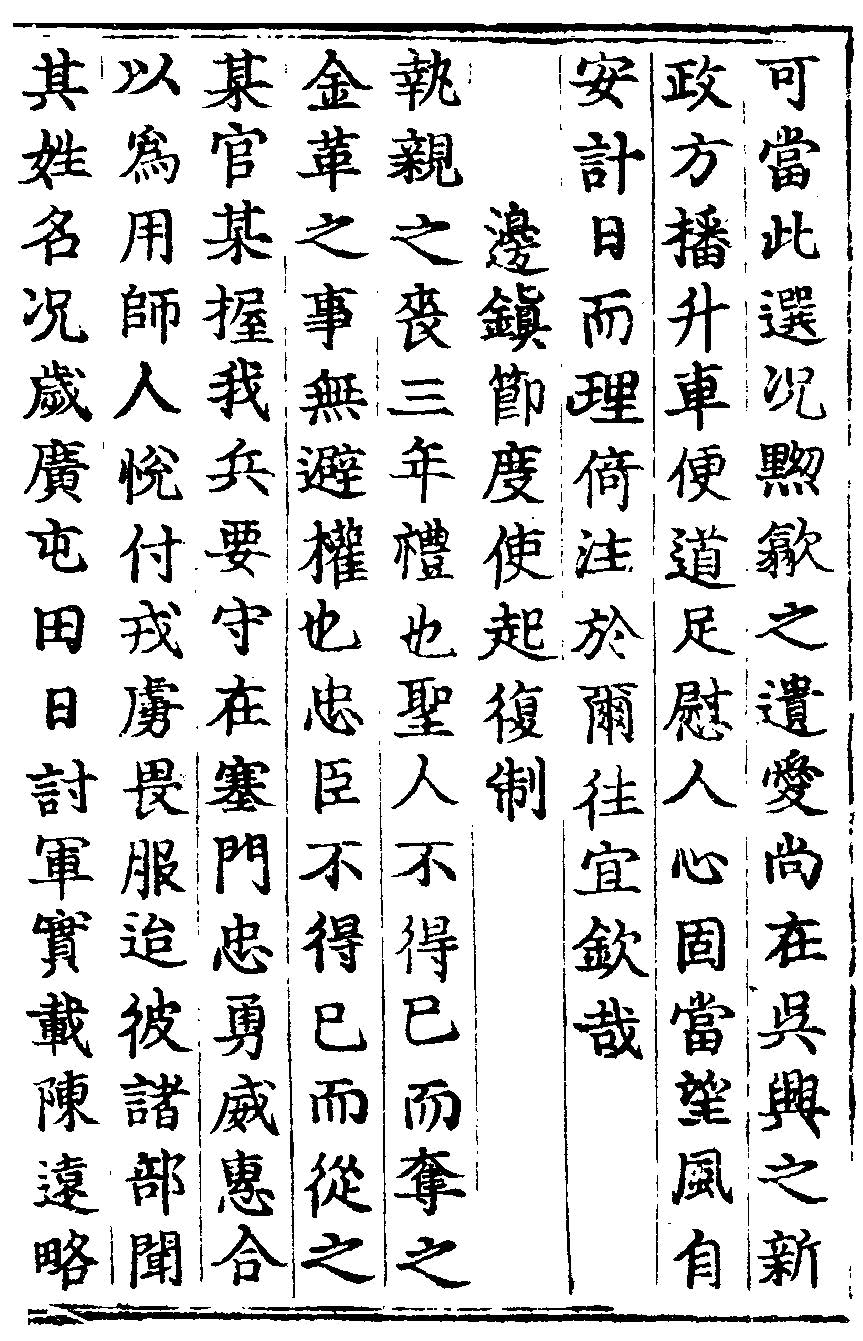 可當此選况黟歙之遺愛尚在吳興之新
政方播升車便道足慰人心固當望風自
安計日而理倚注於爾往宜欽哉
邊鎮節度使起復制
執親之喪三年禮也聖人不得已而奪之
金革之事無避權也忠臣不得已而從之
某官某握我兵要守在塞門忠勇威惠合
以爲用師人悅付戎虜畏服迨彼諸部聞
其姓名况歲廣屯田日討軍實載陳遠略